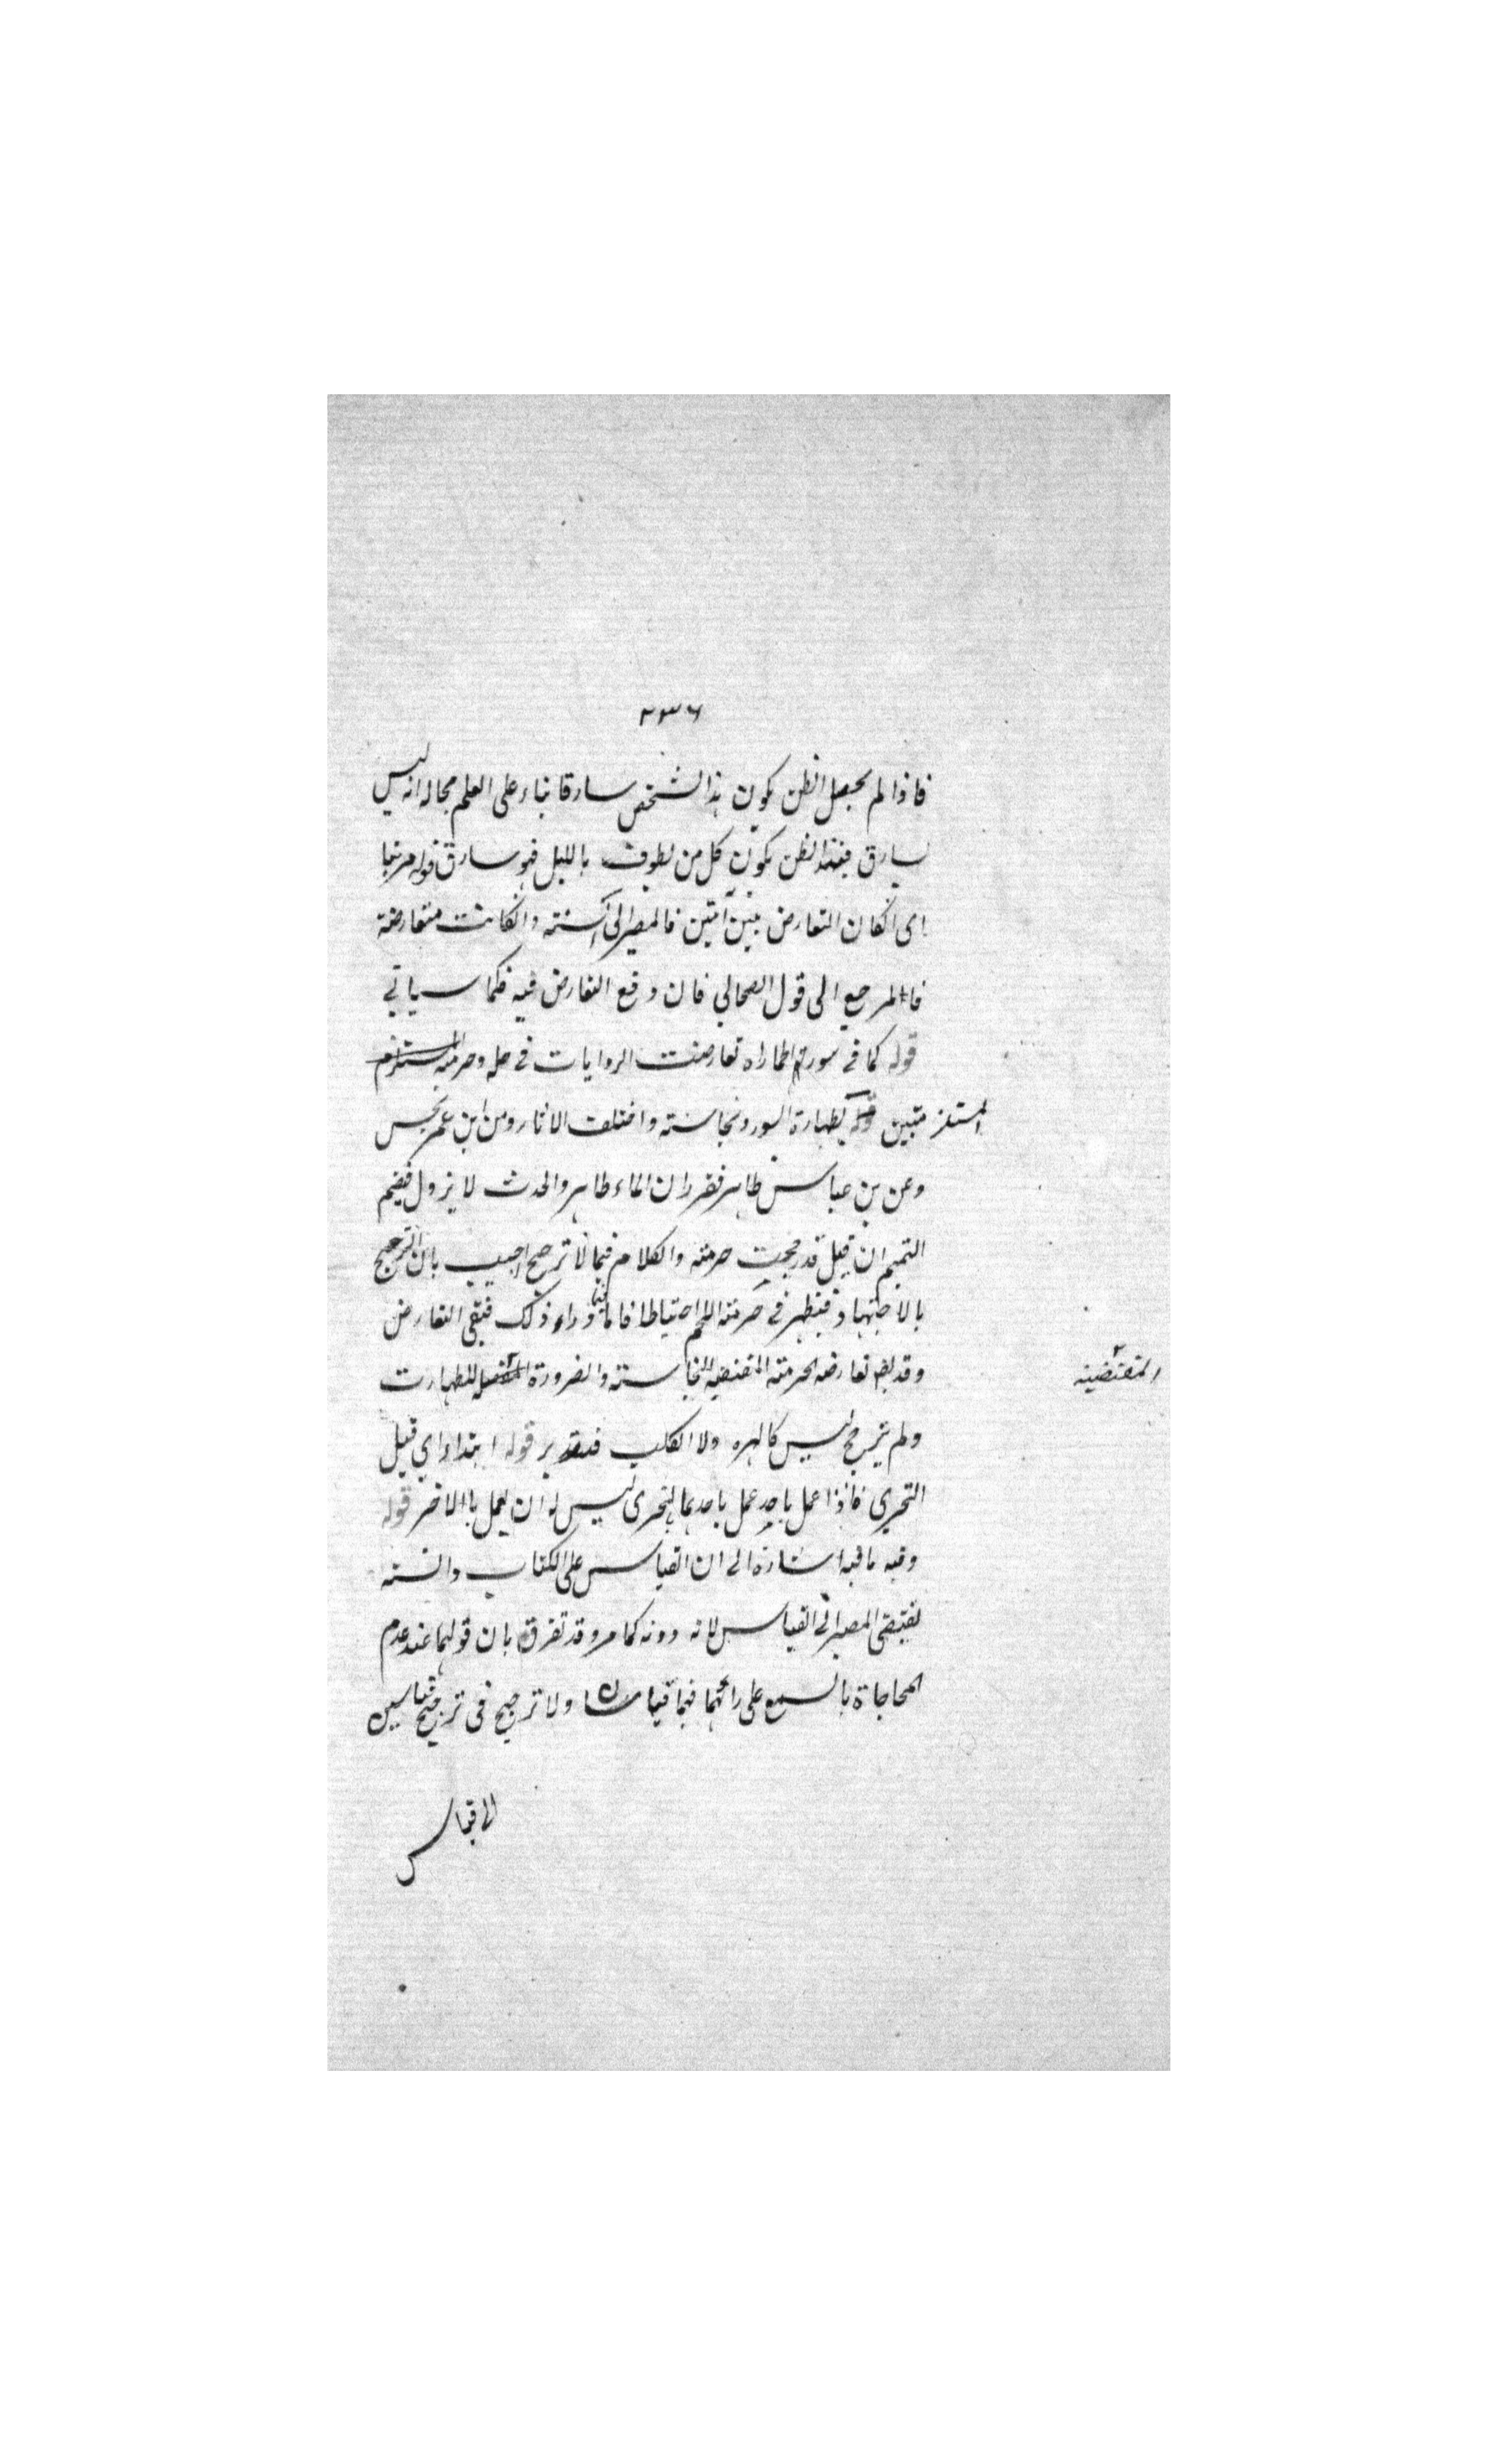 ٢٣٦
فاذا لم يحصل الظن بكون هذا الشخص سارقا بناء على العلم بحاله انه ليس
بسارق فيفقد الظن بكون كل من يطوف بالليل فهو سارق قوله مرتبا
اى انكان التعارض بين آيتين فالمصير الى السنة وانكانت متعارضة
فالمرجع الى قول الصحابي فان وقع التعارض فيه فكما سياتي
قوله كما في سور الحمار اه تعارضت الروايات في حله وحرمته المستلزم
المستلزمتين لطهارة السور ونجاسته واختلف الاثار ومن ابن عمر نجس
وعن بن عباس طاهر فقرر ان الماء طاهر والحدث لا يزول فيضم
التيمم ان قيل قد رجحت حرمته والكلام فيما لا ترجيح اجيب بان الترجيح
بالاجتهاد فيظهر في حرمته اللحم احتياطا فاما فيما وراء ذلك فبقي التعارض
وقد تعارضه الحرمته المقتضيه النجاسته والضرورة للطهارت
المقتضيته
ولم يترجح ليس كالهره ولا الكلب فتدبر قوله ابتداء اي قبيل
التحري فاذا عمل باحد عمل باحدهما بالتحرى ليس له ان يعمل بالاخر قوله
وفيه ما فيه اشارة الى ان القياس على الكتاب والسنته
يقتضى المصير الى القياس لانه دونه كما مر وقد تفرق بان قوليهما عند عدم
المحاجاة بالسمع على رائهما فهما قياسان ولا ترجيح فى ترجيح قياسين
الى قياس